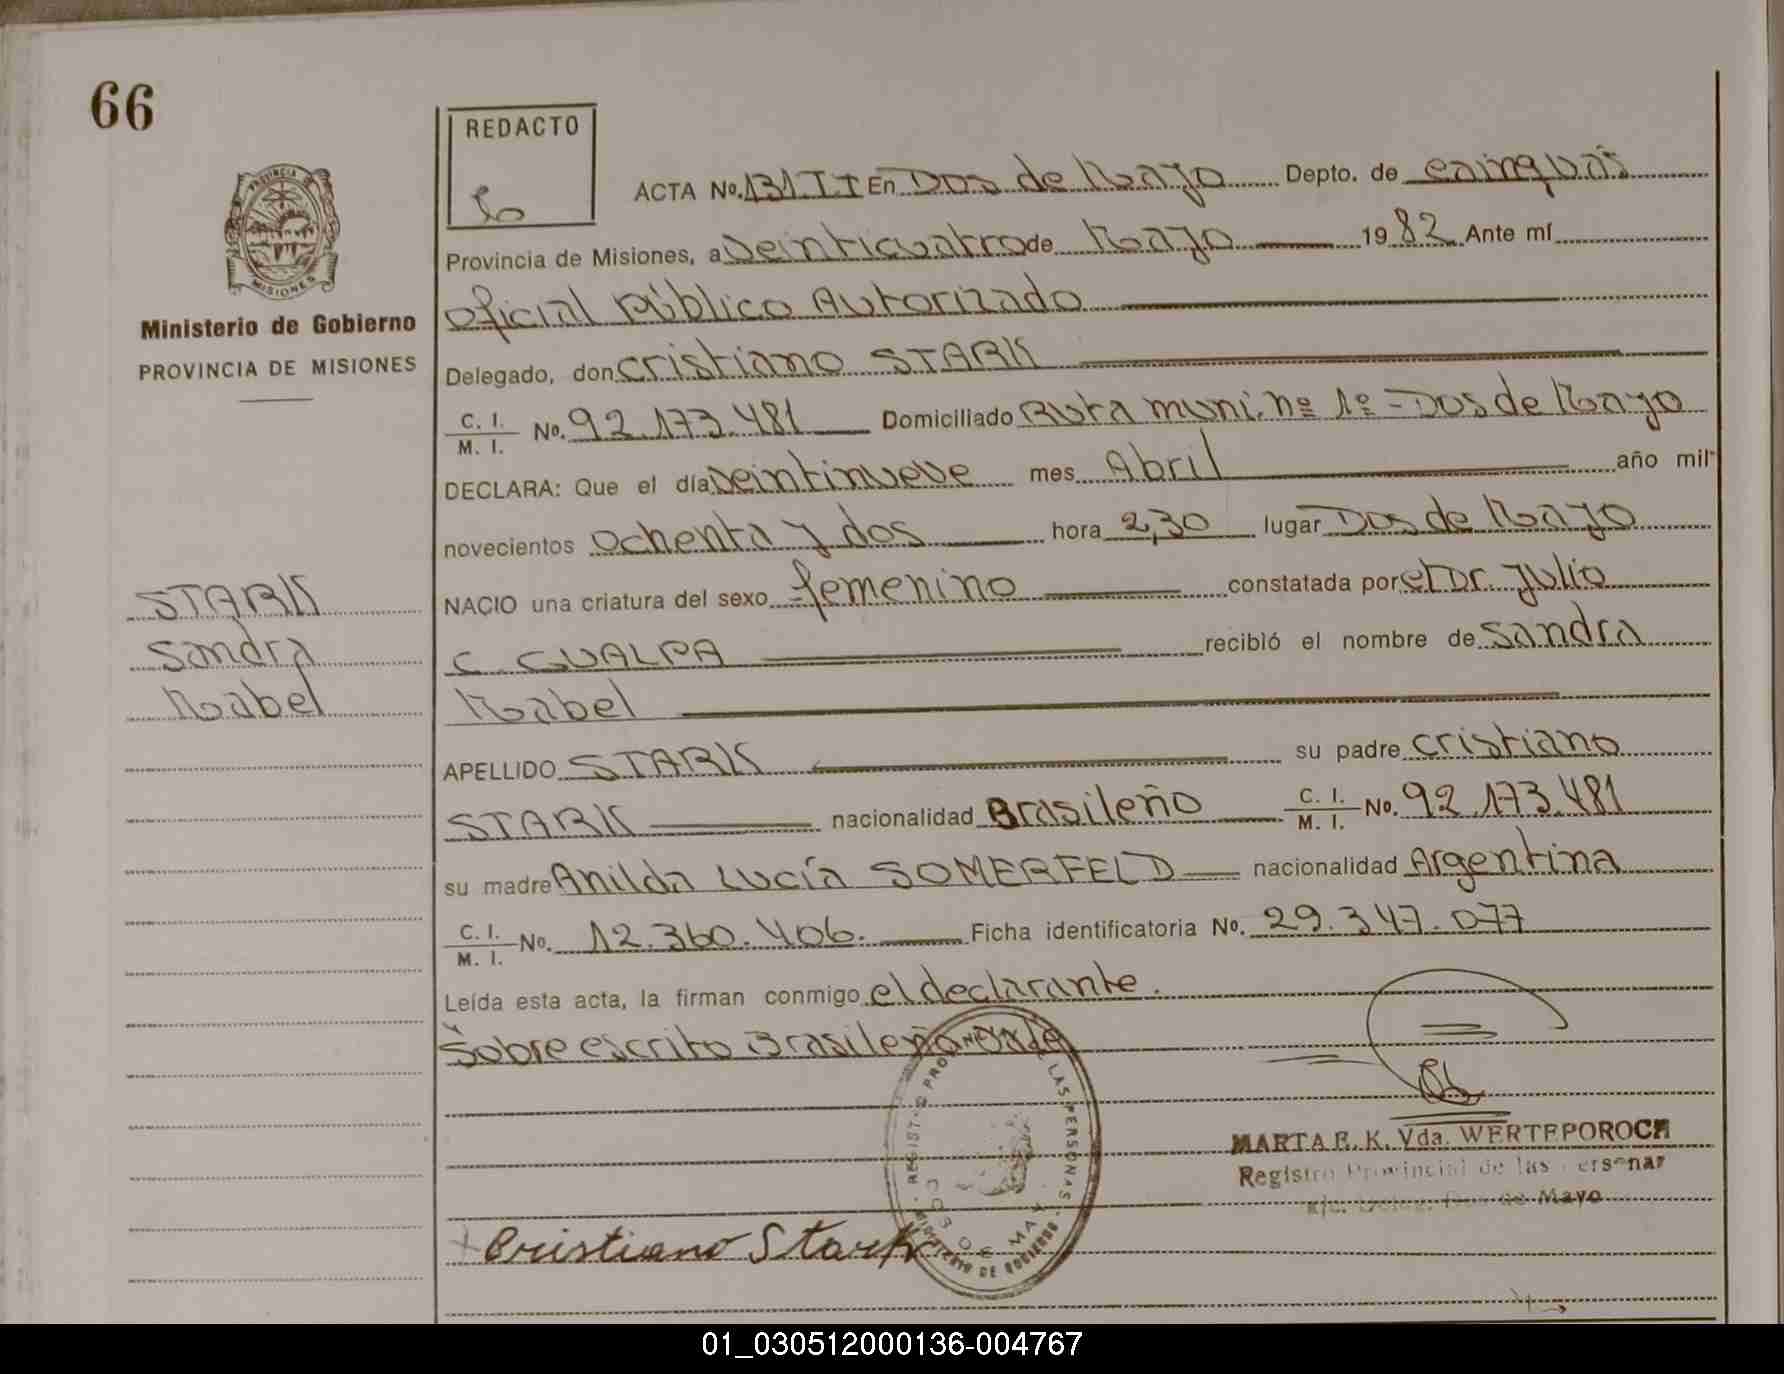 66
REDACTO
ACTA No. 131 II En Dos de Mayo Depto. de Cainguás
Provincia de Misiones, a veinticuatro de Mayo 1982 Ante mí
Oficial Público Autorizado
Ministerio de Gobierno
PROVINCIA DE MISIONES
Delegado, don Cristiano STARK
C. I.
M. I. No. 92.173.481 Domiciliado Ruta muni. nº 1º - Dos de Mayo
DECLARA: Que el día veintinueve mes Abril año mil
novecientos ochenta y dos hora 2,30 lugar Dos de Mayo
STARK
NACIO una criatura del sexo femenino constatada por el Dr. Julio
Sandra
C. GUALPA recibió el nombre de Sandra
Mabel
Mabel
APELLIDO STARK su padre Cristiano
STARK nacionalidad Brasileño C. I.
M. I. No. 92.173.481
su madre Anilda Lucía SOMERFELD nacionalidad Argentina
C. I.
M. I. No. 12.360.406. Ficha identificatoria No. 29.347.077
Leída esta acta, la firman conmigo el declarante.
Sobre escrito Brasileño Vale
MARTA E. K. Vda. WERTEPOROCH
Registro Provincial de las Personas
Dos de Mayo
Cristiano Stark
01_030512000136-004767